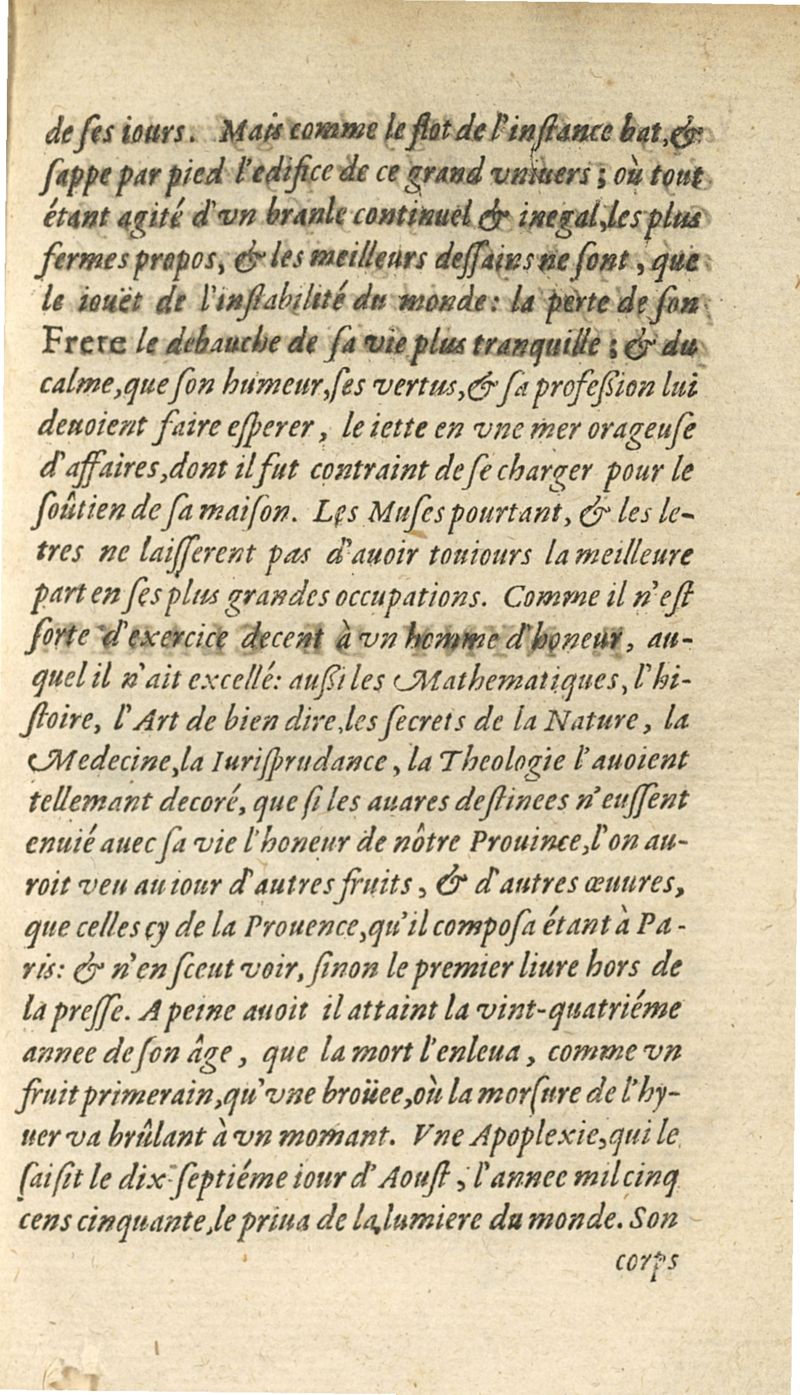 de ſes iours. Mais comme le flot de l'inſtance bat, &
ſappe par pied l'edifice de ce grand vniuers ; où tout
étant agité d'vn branle continuel & inegal, les plus
fermes propos, & les meilleurs deſſains ne ſont, que
le iouët de l'inſtabilité du monde: la perte de ſon
Frere le débauche de ſa vie plus tranquille ; & du
calme, que ſon humeur, ſes vertus, & ſa profeßion lui
deuoient faire eſperer, le iette en vne mer orageuſe
d'affaires, dont il fut contraint de ſe charger pour le
ſoûtien de ſa maiſon. Les Muſes pourtant, & les le-
tres ne laiſſerent pas d'auoir touiours la meilleure
part en ſes plus grandes occupations. Comme il n'eſt
ſorte d'exercice decent à vn homme d'honeur, au-
quel il n'ait excellé: außi les Mathematiques, l'hi-
ſtoire, l'Art de bien dire, les ſecrets de la Nature, la
Medecine, la Iuriſprudance, la Theologie l'auoient
tellemant decoré, que ſi les auares deſtinees n'euſſent
enuié auec ſa vie l'honeur de nôtre Prouince, l'on au-
roit veu au iour d'autres fruits, & d'autres œuures,
que celles çy de la Prouence, qu'il compoſa étant à Pa-
ris: & n'en ſceut voir, ſinon le premier liure hors de
la preſſe. A peine auoit il attaint la vint-quatriéme
annee de ſon âge, que la mort l'enleua, comme vn
fruit primerain, qu'vne broüee, où la morſure de l'hy-
uer va brûlant à vn momant. Vne Apoplexie, qui le
ſaiſit le dix-ſeptiéme iour d'Aouſt, l'annee mil cinq
cens cinquante, le priua de la lumiere du monde. Son
corps